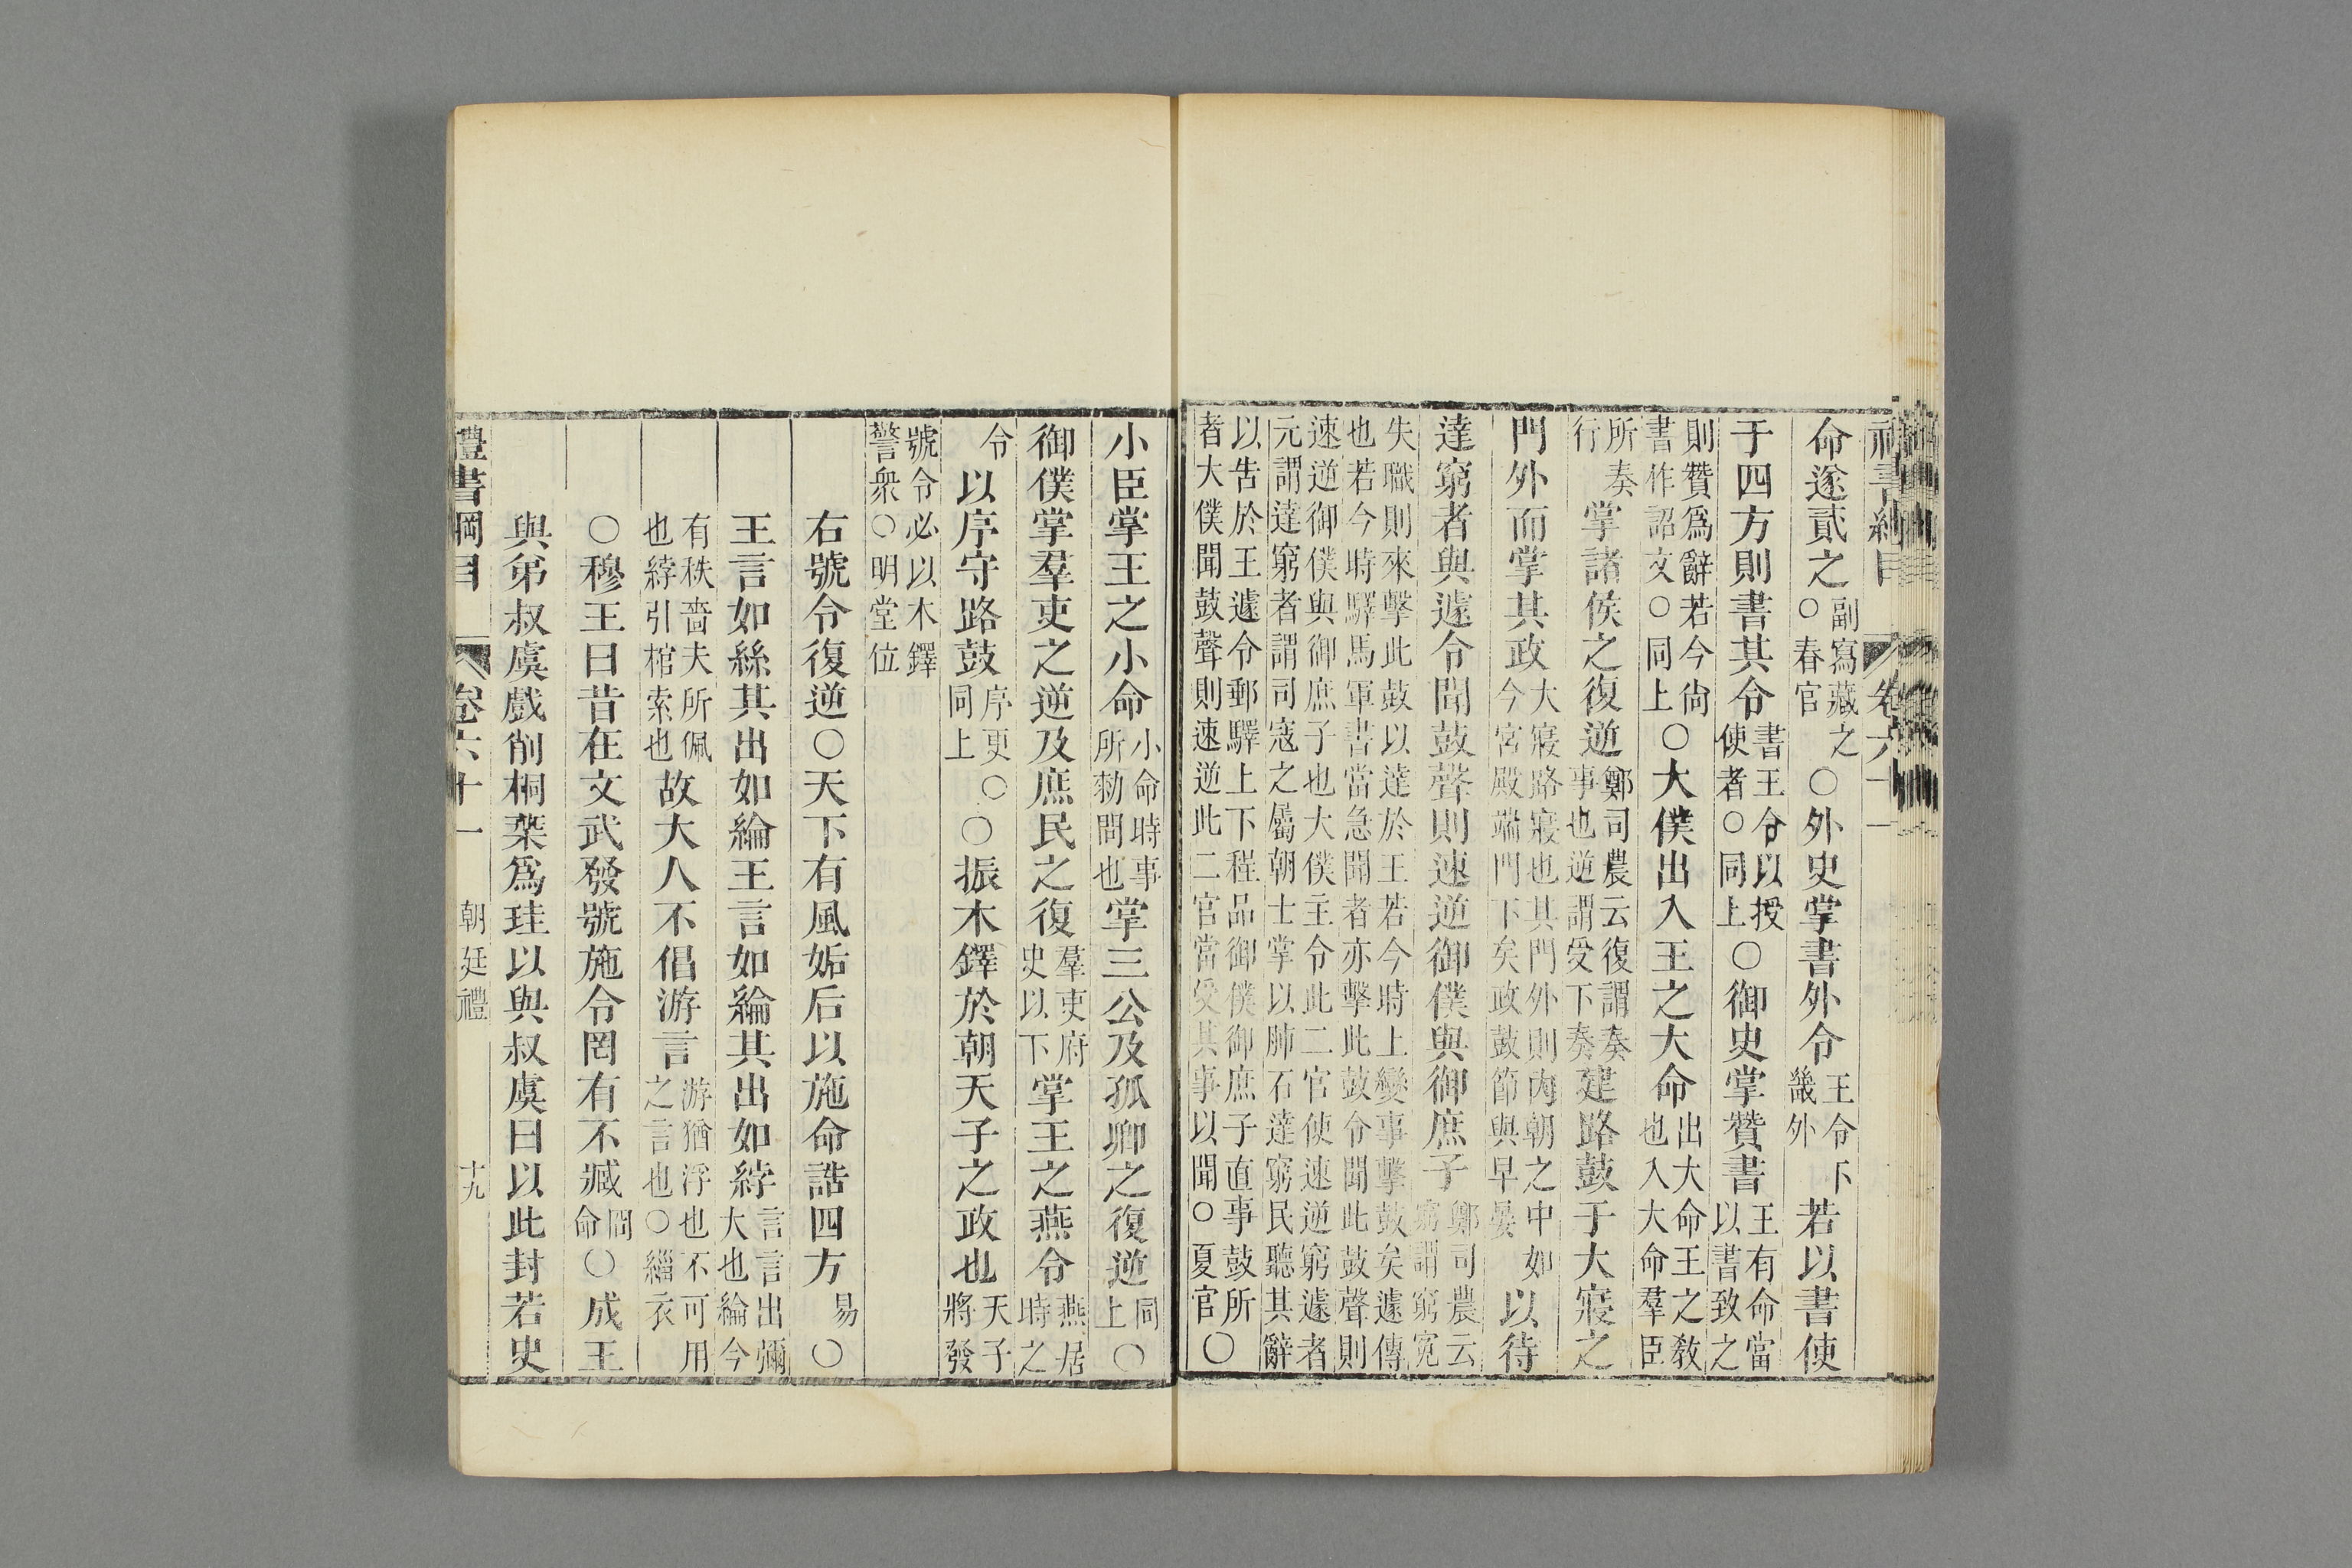 命遂貳之副寫藏之○春官○外史掌書外令王令下畿外若以書使
于四方則書其令書王令以授使者○同上○御史掌贊書王有命當以書致之
則贊爲辭若今尙書作詔文○同上○大僕出入王之大命出大命王之敎也入大命羣臣
所奏行掌諸侯之復逆鄭司農云復謂奏事也逆謂受下奏建路鼓于大寢之
門外而掌其政大寢路寢也其門外則內朝之中如今宮殿端門下矣政鼓節與早晏以待
達窮者與遽令聞鼓聲則速逆御僕與御庶子鄭司農云窮謂窮冤
失職則來擊此鼓以達於王若今時上變事擊鼓矣遽傳也若今時驛馬軍書當急聞者亦擊此鼓令聞此鼓聲則
速逆御僕與御庶子也大僕主令此二官使速逆窮遽者元謂達窮者謂司寇之屬朝士掌以肺石達窮民聽其辭
以吿於王遽令郵驛上下程品御僕御庶子直事鼓所者大僕聞鼓聲則速逆此二官當受其事以聞○夏官○
小臣掌王之小命小命時事所勑問也掌三公及孤卿之復逆同上○
御僕掌羣吏之逆及庶民之復羣吏府史以下掌王之燕令燕居時之
令以序守路鼓序更同上○○振木鐸於朝天子之政也天子將發
號令必以木鐸警衆○明堂位
右號令復逆○天下有風姤后以施命誥四方易○
王言如絲其出如綸王言如綸其出如綍言言出彌大也綸今
有秩嗇夫所佩也綍引棺索也故大人不倡游言游猶浮也不可用之言也○緇衣
○穆王曰昔在文武發號施令罔有不臧冏命○成王
與弟叔虞戲削桐葉爲珪以與叔虞曰以此封若史
禮書綱目 卷六十一 朝廷禮 十九